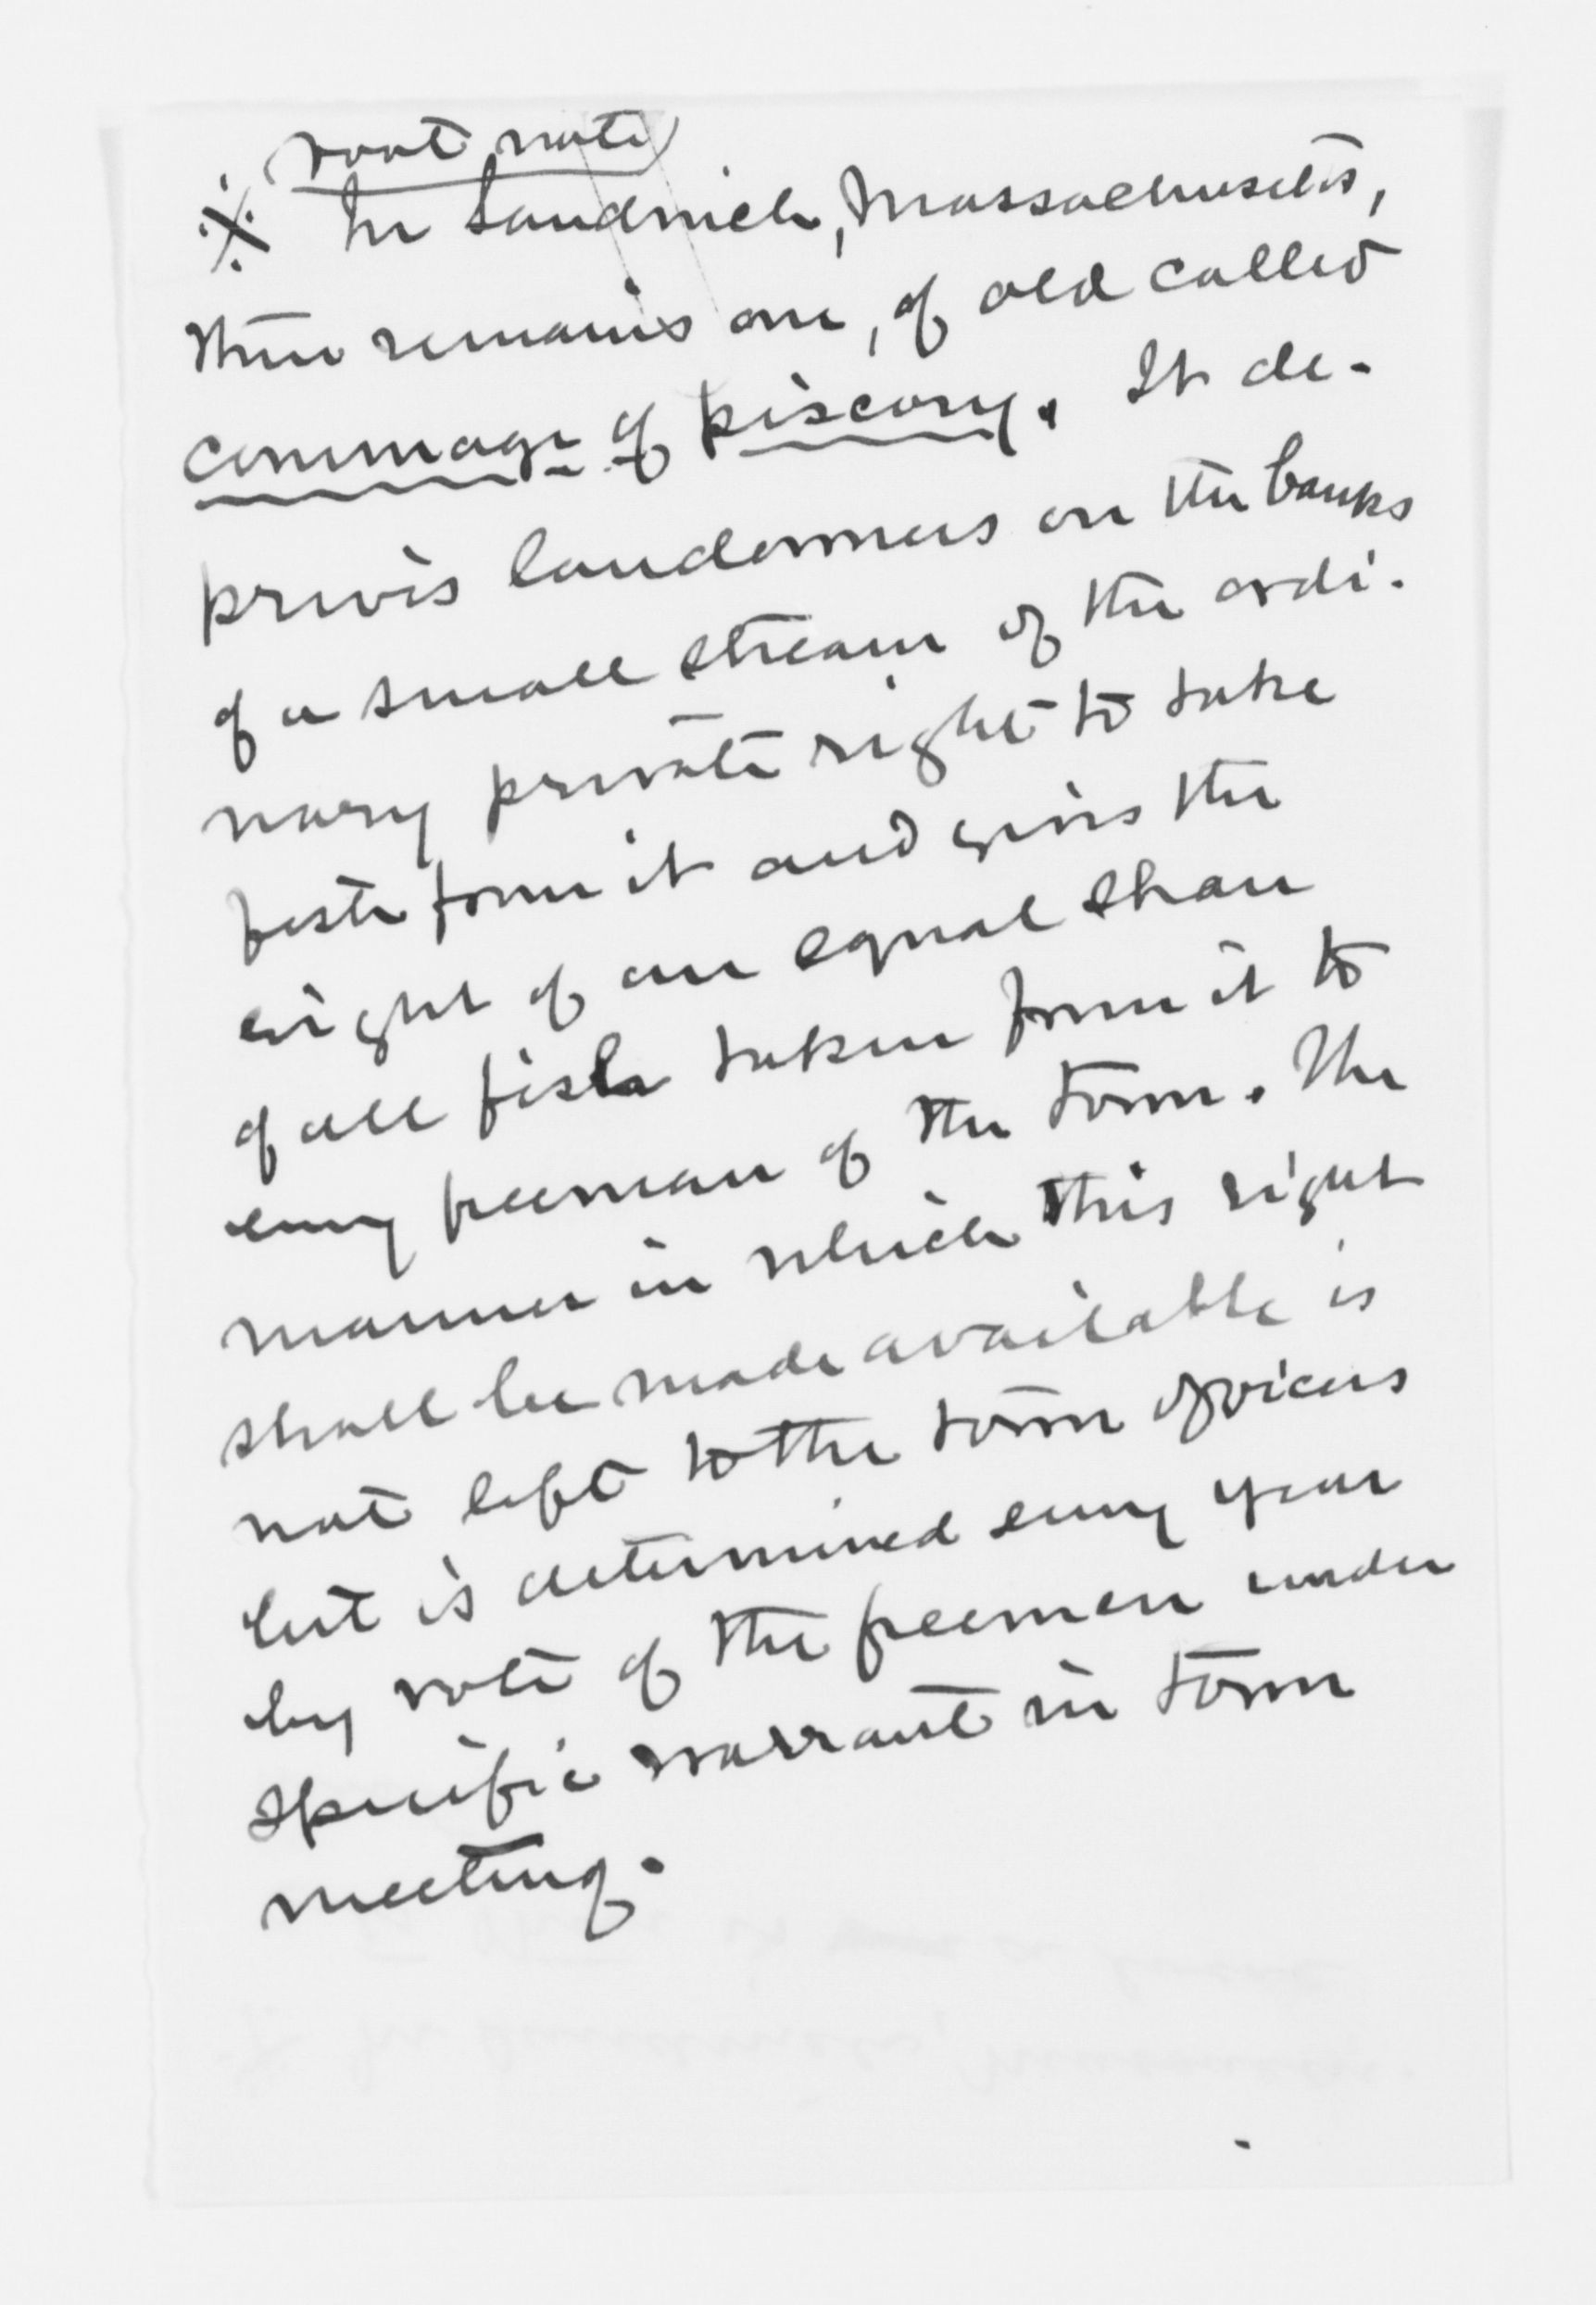 (Foot note)
※ In Sandwich, Massachusetts,
there remains one, of old called
commage of piscary. It de-
prives landowners on the banks
of a small stream of the ordi-
nary private right to take
fish from it and gives the
right of an equal share
of all fish taken from it to
every freeman of the town. The
manner in which this right
shall be made available is
not left to the town officers
but is determined every year
by vote of the freemen under
specific warrant in town
meeting.